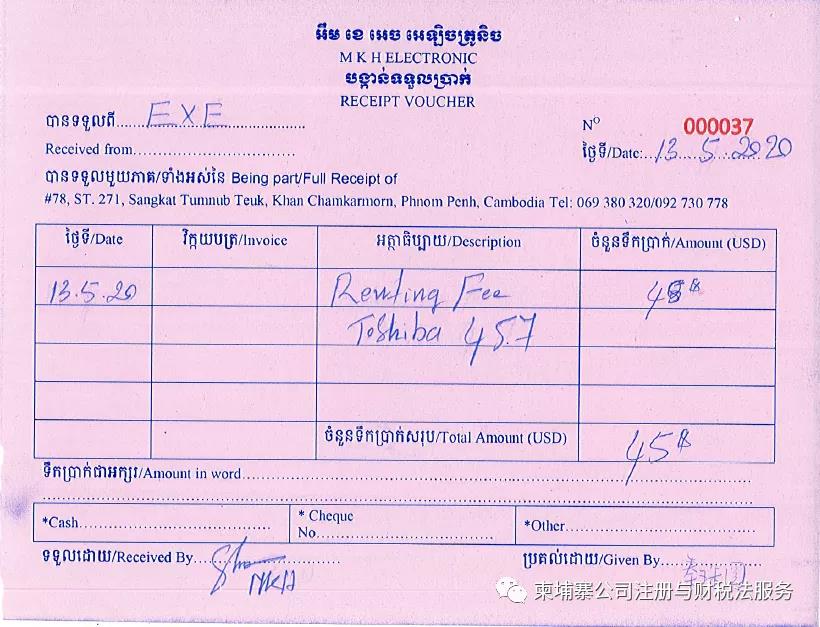 អឹម ខេ អេច អេឡិចត្រូនិច
M K H ELECTRONIC
បង្កាន់ទទួលប្រាក់
RECEIPT VOUCHER
បានទទួលពី......EXE..............
Received from..............................
Nº 000037
ថ្ងៃទី/Date:..13..5..2020
បានទទួលមួយភាគ/ទាំងអស់នៃ Being part/Full Receipt of
#78, ST. 271, Sangkat Tumnub Teuk, Khan Chamkarmorn, Phnom Penh, Cambodia Tel: 069 380 320/092 730 778
ថ្ងៃទី/Date វិក្កយបត្រ/Invoice អត្ថាធិប្បាយ/Description ចំនួនទឹកប្រាក់/Amount (USD)
13.5.20 Renting Fee 45$
Toshiba 457
ចំនួនទឹកប្រាក់សរុប/Total Amount (USD) 45$
ទឹកប្រាក់ជាអក្សរ/Amount in word..............................
*Cash.............................. * Cheque *Other..............................
No..............................
ទទួលដោយ/Received By.............. ប្រគល់ដោយ/Given By..............
MKH
柬埔寨公司注册与财税法服务